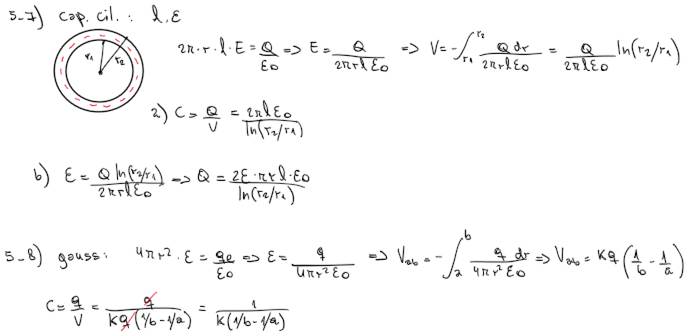 5-7) cap. cil.: l, ε
r1 r2
2π·r·l·E = Q/ε0 => E = Q/(2πrlε0) => V = -∫_{r1}^{r2} Q dr/(2πrlε0) = Q/(2πlε0) ln(r2/r1)
a) C = Q/V = 2πlε0/ln(r2/r1)
b) ε = Q ln(r2/r1)/(2πrlε0) => Q = 2ε·πrl·ε0/ln(r2/r1)
5-8) gauss: 4πr²·E = qe/ε0 => E = q/(4πr²ε0) => Vab = -∫_a^b q dr/(4πr²ε0) => Vab = kq(1/b - 1/a)
C = q/V = q/(kq(1/b-1/a)) = 1/(k(1/b-1/a))